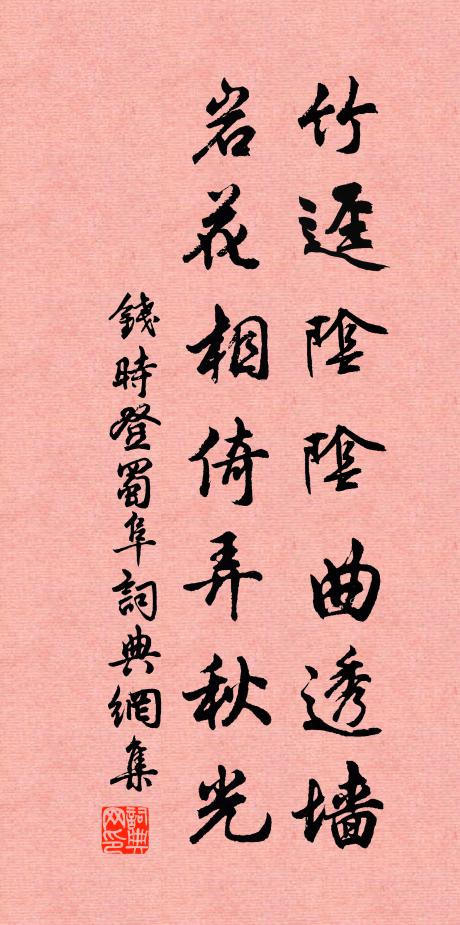 竹逕陰陰曲透墙
岩花相倚弄秋光
錢時登蜀阜詞典網集
詞典网印